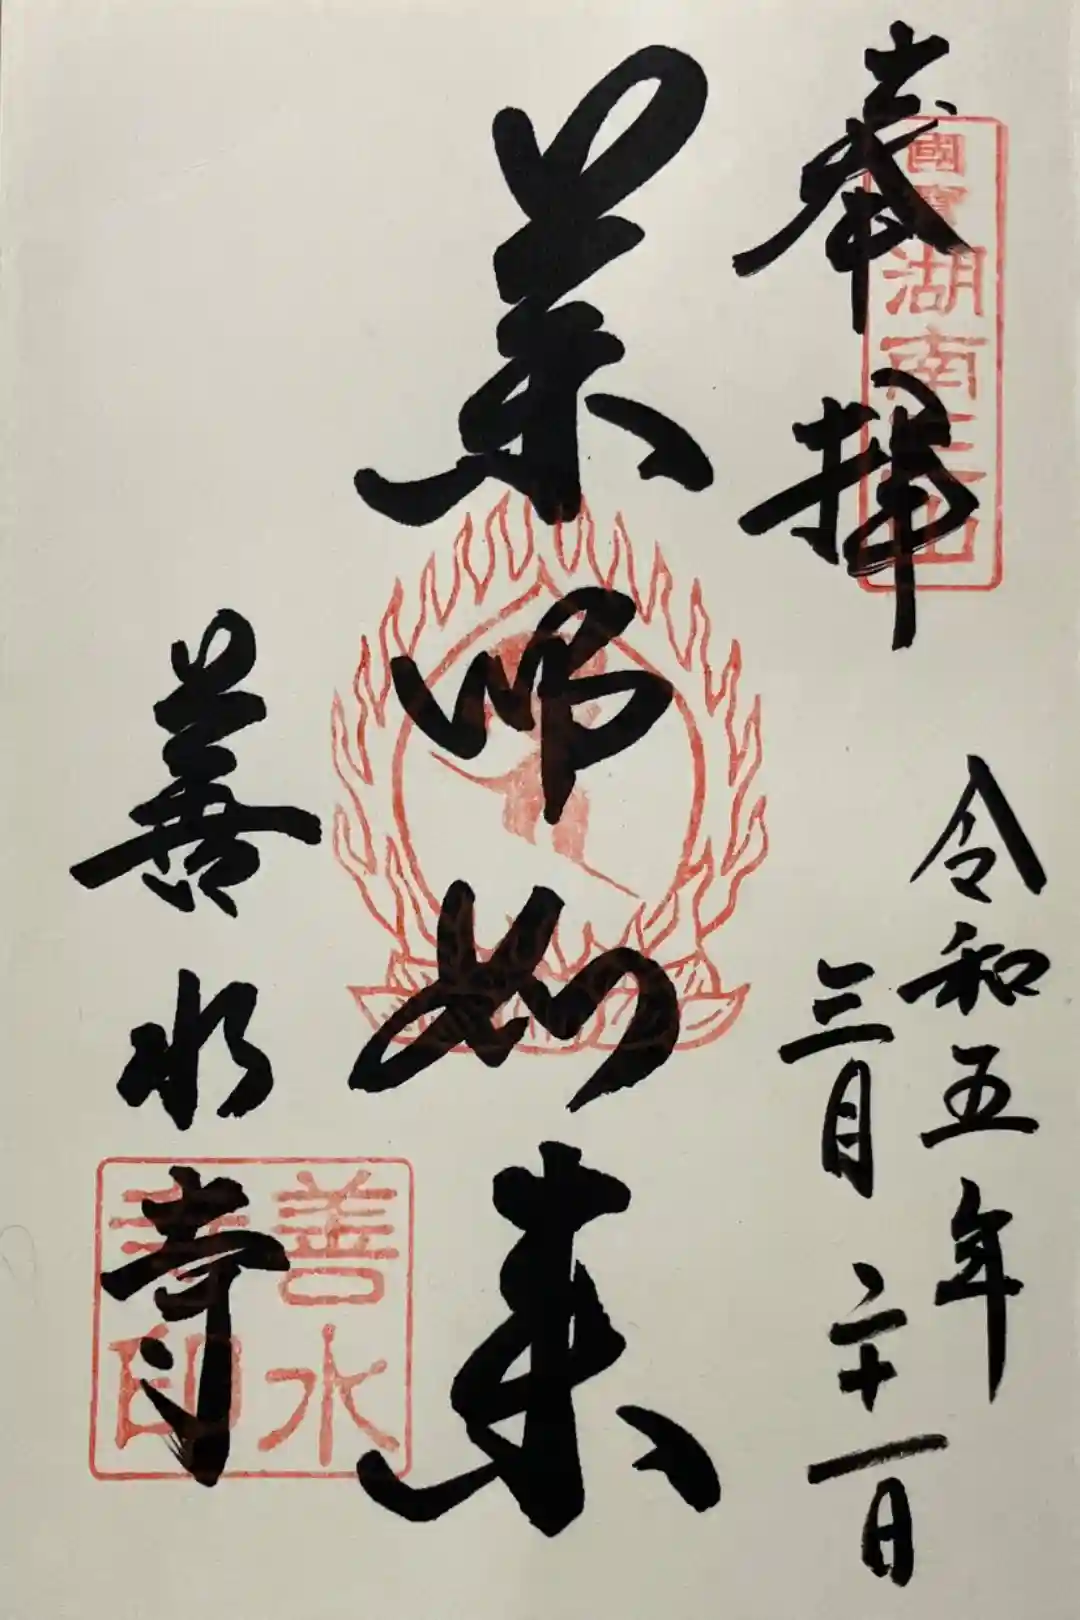 奉拝
國寳
湖南三山
令和五年
三月二十一日
薬師如来
善水寺
善水
寺印